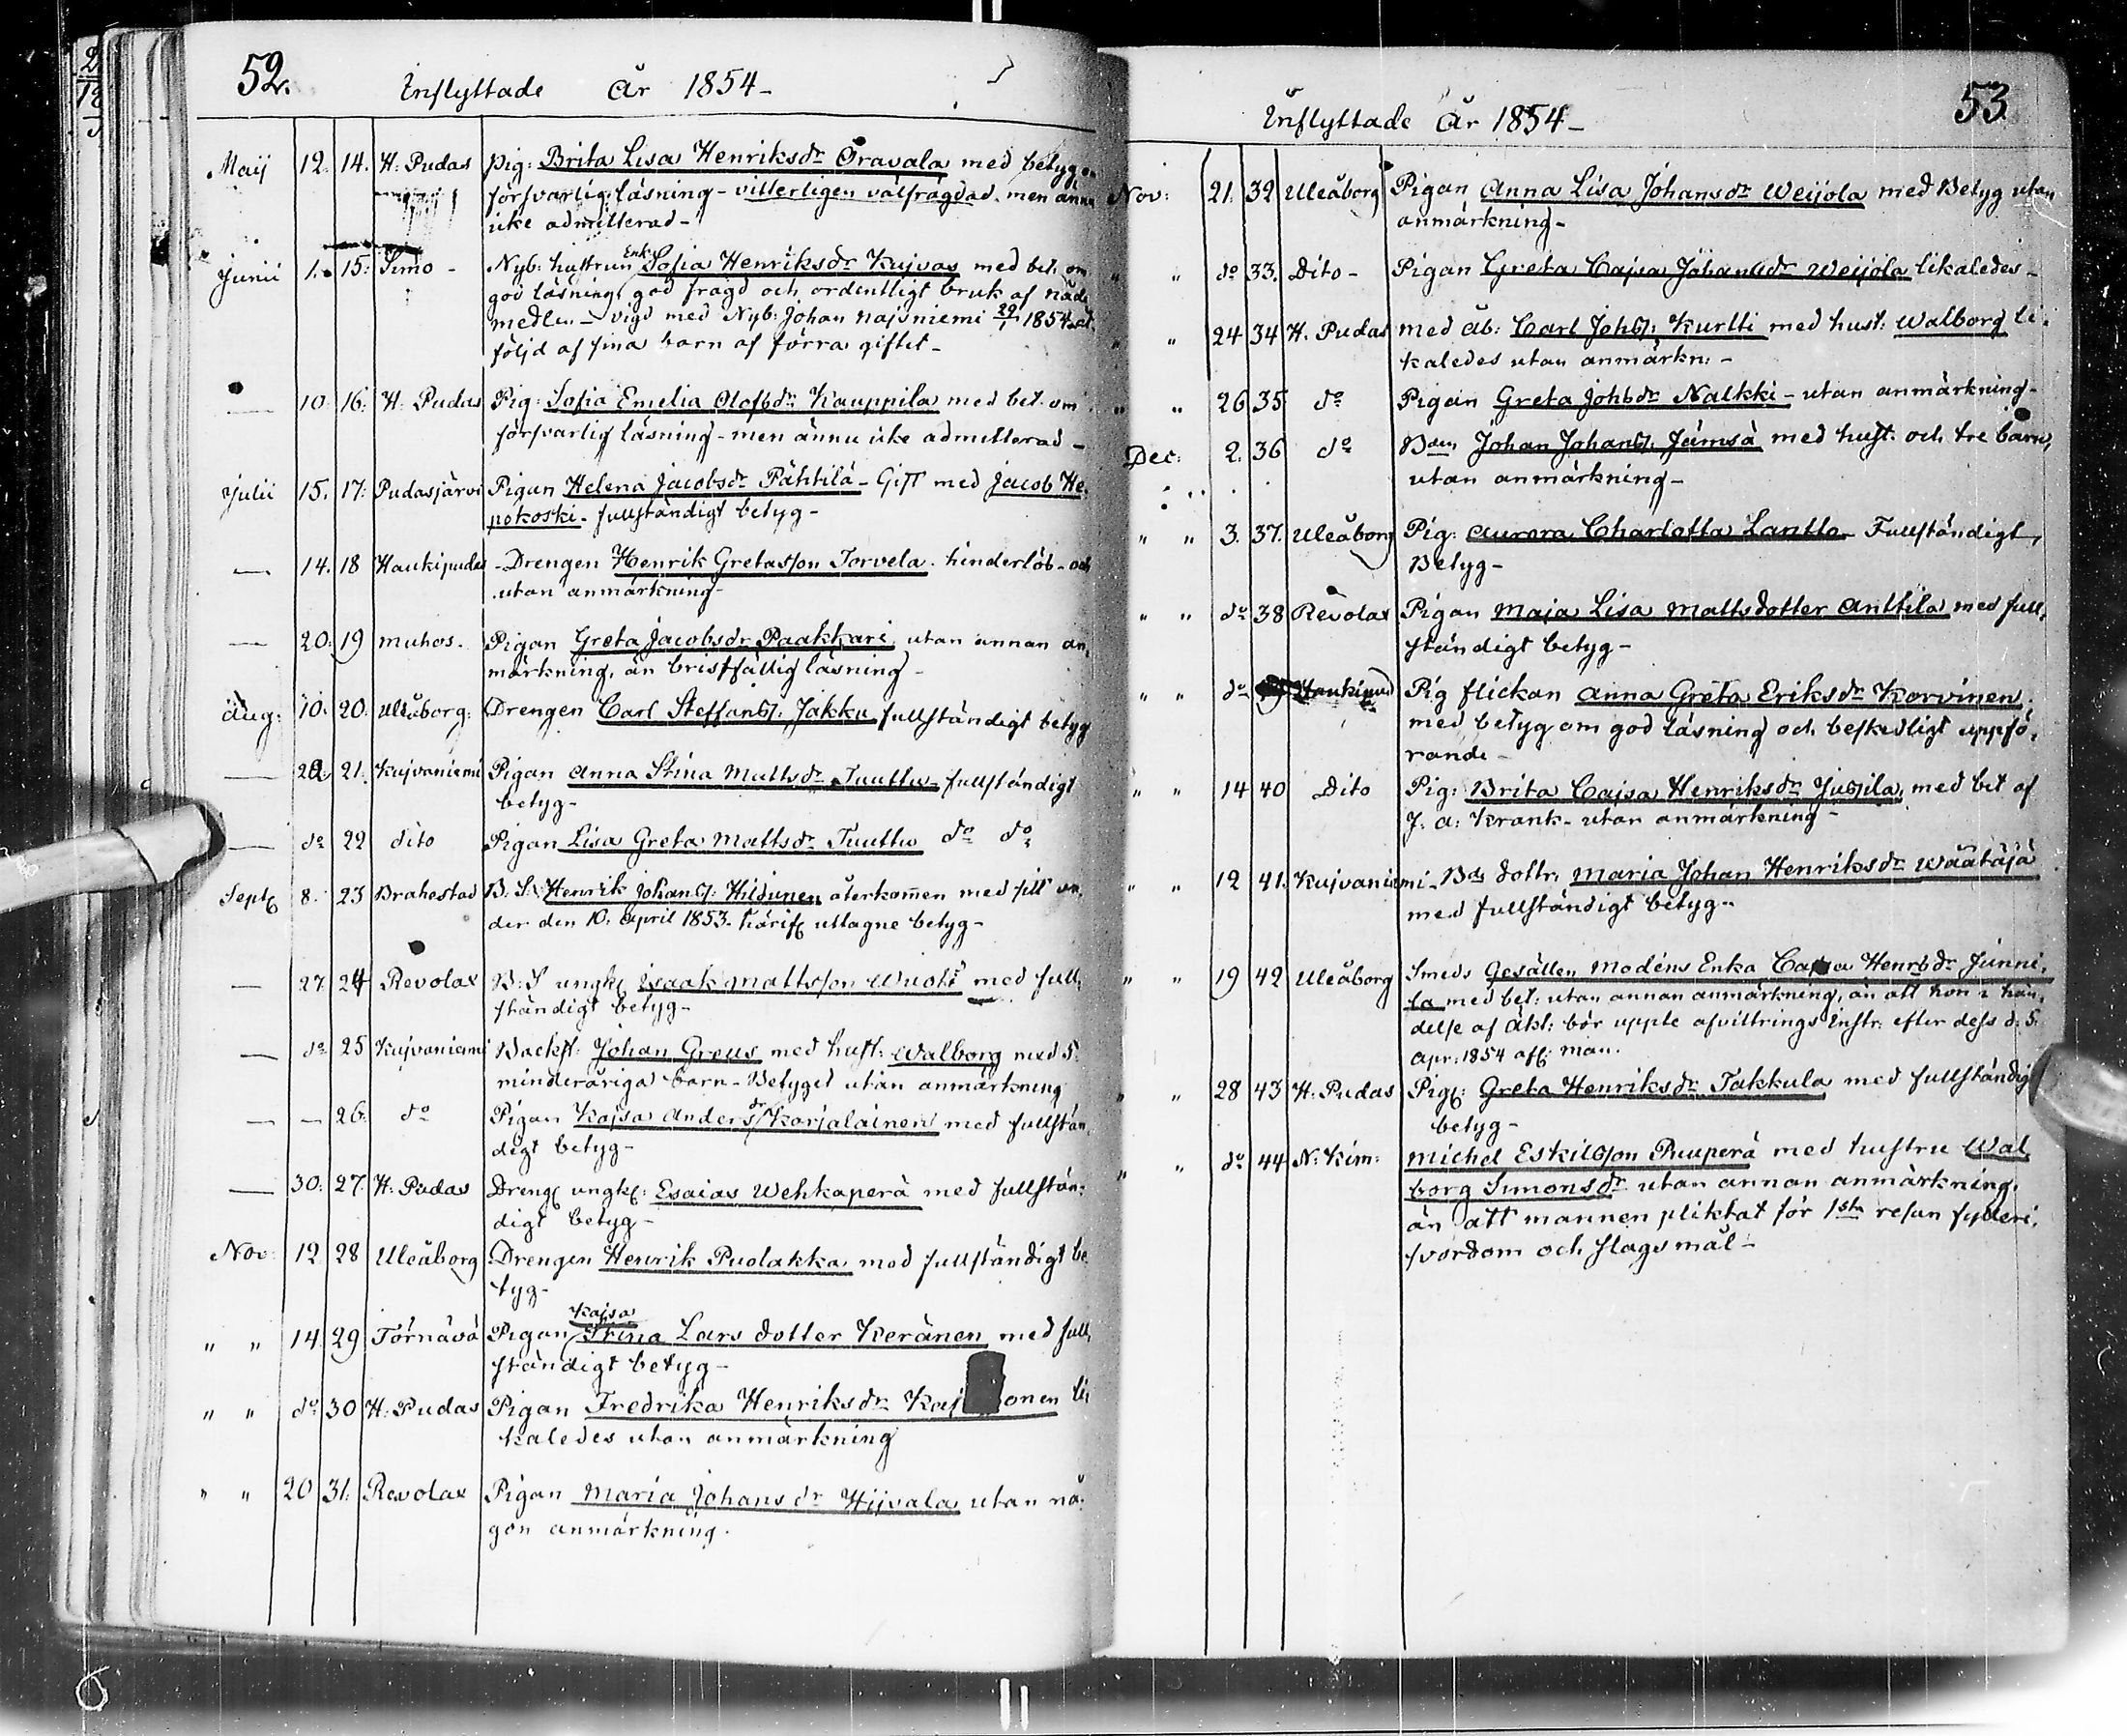 52.
Inflyttade År 1854-
Maij 12. 14. H: Pudas pig: Brita Lisa Henriksdr Oravala med betyg om
försvarlig läsning - vitterligen välfrägdad. men ännu
icke admitterad-
Junii 1. 15: Simo - Nyb: hustrun Enk: Sofia Henriksdr Kujvas med bet. om
god läsning, god frägd och ordentligt bruk af nåde
medlen - vigd med Nyb: Johan Najsniemi 29/1 1854
följd af sina barn af förra giftet-
— 10. 16. H: Pudas Pig: Sofia Emelia Olofsdr Kauppila med bet. om
försvarlig läsning - men ännu icke admitterad-
Julii 15. 17: Pudasjärvi Pigan Helena Jacobsdr Pähtilä - Gift med Jacob He,
pokoski - fullständigt betyg-
— 14. 18 Haukipudas - Drengen Henrik Gretasson Torvela. hinderlös - och
utan anmärkning-
— 20. 19 Muhos. Pigan Greta Jacobsdr Paakkari, utan annan an,
märkning, än bristfällig läsning-
Aug: 10. 20. Uleåborg: Drengen Carl Steffans: Jakku fullständigt betyg
— 22. 21. Kujvaniemi Pigan Anna Stina Mattsdr Tuuttu - fullständigt
betyg-
— do 22 dito Pigan Lisa Greta Mattsdr Tuuttu do do
Sept: 8. 23 Brahestad B. S. Henrik Johans: Hildunen återkommen med sitt un,
der den 10. April 1853. härif: uttagne betyg-
— 27. 24 Revolax B: S ungk: Isaak Mattsson Wuoti med full,
ständigt betyg-
— do 25 Kujvaniemi Backst: Johan Greus med hust: Walborg med 5
minderåriga barn - Betyget utan anmärkning
— — 26. do Pigan Kajsa Andersdr Karjalainen med fullstän,
digt betyg-
— 30. 27. H: Pudas Dreng: ungk: Esaias Wehkaperä med fullstän,
digt betyg-
Nov: 12 28 Uleåborg Drengen Henrik Puolakka med fullständigt be,
tyg-
Kajsa
" " 14. 29 Törnävä Pigan Stina Lars dotter Keränen med full,
ständigt betyg-
" " do 30 H: Pudas Pigan Fredrika Henriksdr onen li,
kaledes utan anmärkning
" " 20 31. Revolax Pigan Maria Johansdr Hijvala utan nå,
gon anmärkning.
53
Inflyttade År 1854-
Nov: 21. 32 Uleåborg Pigan Anna Lisa Johansdr Weijola med Betyg utan
anmärkning-
" " do 33. Dito - Pigan Greta Cajsa Johansdr Weijola likaledes-
" " 24 34 H. Pudas med åb: Carl Johs: Kurtti med hust: Walborg li,
kaledes utan anmärkn: -
" " 26 35 do Pigan Greta Johsdr Nalkki - utan anmärkning-
Dec: 2. 36 do Bden Johan Johans: Jämsä med hust. och tre barn,
utan anmärkning-
" " 3. 37. Uleåborg Pig: Aurora Charlotta Lantto - Fullständigt
Betyg-
" " do 38 Revolax Pigan Maja Lisa Mattsdotter Anttila med full,
ständigt betyg-
" " do Haukipud Pig flickan Anna Greta Eriksdr Korvinen
med betyg om god läsning och beskedligt uppfö,
rande-
" " 14 40 Dito Pig: Brita Cajsa Henriksdr Jussila, med bet af
J. A: Krank - utan anmärkning-
" " 12 41. Kujvaniemi - Bds dottr. Maria Johan Henriksdr Wäätäjä
med fullständigt betyg-
" " 19 42 Uleåborg Smeds Gesällen Modéns Enka Henrsdr Junni,
la med bet: utan annan anmärkning, än att hon i hän,
delse af äkt: bör uppte afvittrings Instr. efter dess d: 5.
Apr: 1854 afl: man.
" " 28 43 H: Pudas Pig: Greta Henriksdr Takkula med fullständigt
betyg-
" " do 44 N: Kim: Michel Eskilsson Puuperä med hustru Wal,
borg Simonsdr utan annan anmärkning,
än att mannen pliktat för 1sta resan fylleri,
svordom och slagsmål-